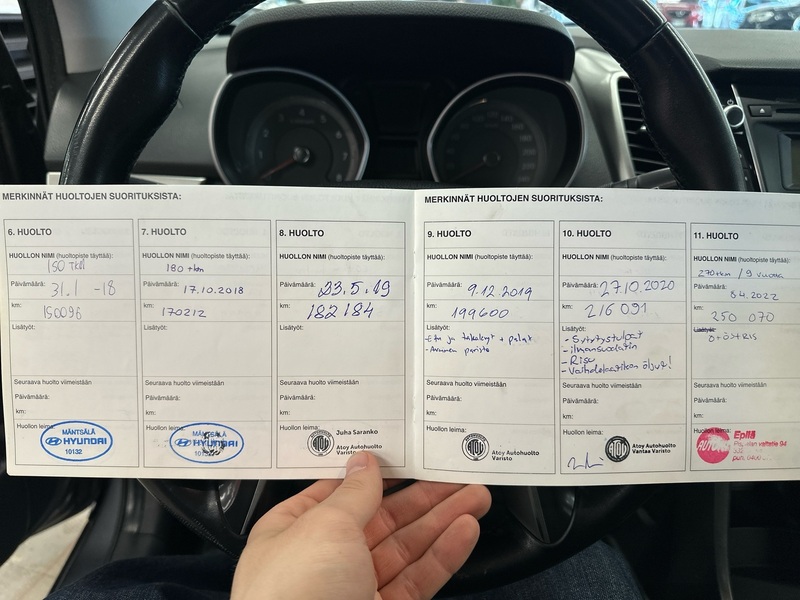 MERKINNÄT HUOLTOJEN SUORITUKSISTA:
6. HUOLTO
HUOLLON NIMI (huoltopiste täyttää):
150 TKM
Päivämäärä: 31.1 -18
km: 150096
Lisätyöt:
Seuraava huolto viimeistään
Päivämäärä:
km:
Huollon leima:
MÄNTSÄLÄ
HYUNDAI
10132
7. HUOLTO
HUOLLON NIMI (huoltopiste täyttää):
180 tkm
Päivämäärä: 17.10.2018
km: 170212
Lisätyöt:
Seuraava huolto viimeistään
Päivämäärä:
km:
Huollon leima:
MÄNTSÄLÄ
HYUNDAI
8. HUOLTO
HUOLLON NIMI (huoltopiste täyttää):
Päivämäärä: 23.5.19
km: 182184
Lisätyöt:
Seuraava huolto viimeistään
Päivämäärä:
km:
Huollon leima:
Juha Saranko
Atoy Autohuolto
Varisto
MERKINNÄT HUOLTOJEN SUORITUKSISTA:
9. HUOLTO
HUOLLON NIMI (huoltopiste täyttää):
Päivämäärä: 9.12.2019
km: 199600
Lisätyöt:
- Etu ja takalevyt + palat
- Avaimen paristo
Seuraava huolto viimeistään
Päivämäärä:
km:
Huollon leima:
Atoy Autohuolto
Varisto
10. HUOLTO
HUOLLON NIMI (huoltopiste täyttää):
Päivämäärä: 27.10.2020
km: 216091
Lisätyöt:
- Sytytystulpat
- ilmansuodatin
- Risu
- Vaihdelaatikon öljyt!
Seuraava huolto viimeistään
Päivämäärä:
km:
Huollon leima:
Atoy Autohuolto
Vantaa Varisto
11. HUOLTO
HUOLLON NIMI (huoltopiste täyttää):
270tkm / 9 vuotta
Päivämäärä: 8.4.2022
km: 250 070
Lisätyöt:
Ö+ÖS+RIS
Seuraava huolto viimeistään
Päivämäärä:
km:
Huollon leima:
Epilä
valtatie 94